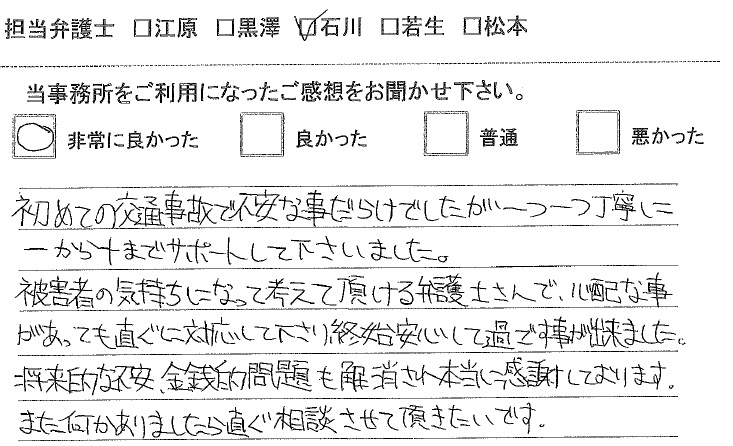 担当弁護士 □江原 □黒澤 ☑石川 □若生 □松本
当事務所をご利用になったご感想をお聞かせ下さい。
非常に良かった 良かった 普通 悪かった
初めての交通事故で不安な事だらけでしたが一つ一つ丁寧に
一から十までサポートして下さいました。
被害者の気持ちになって考えて頂ける弁護士さんで、心配な事
があっても直ぐに対応して下さり終始安心して過ごす事が出来ました。
将来的な不安、金銭的問題も解消され本当に感謝しております。
また何かありましたら直ぐ相談させて頂きたいです。